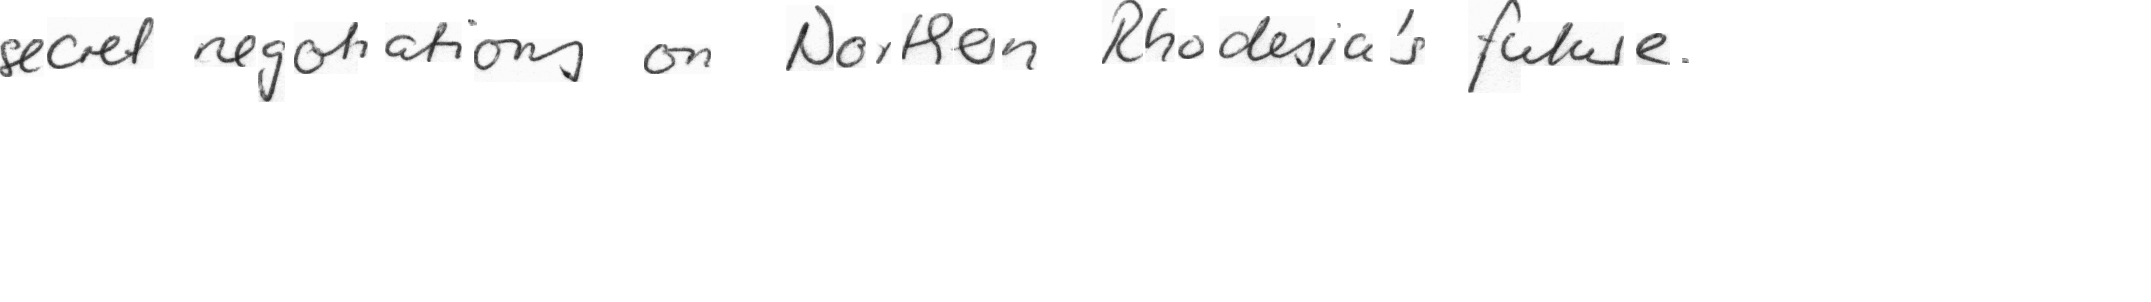 secret negotiations on Northern Rhodesia's future.